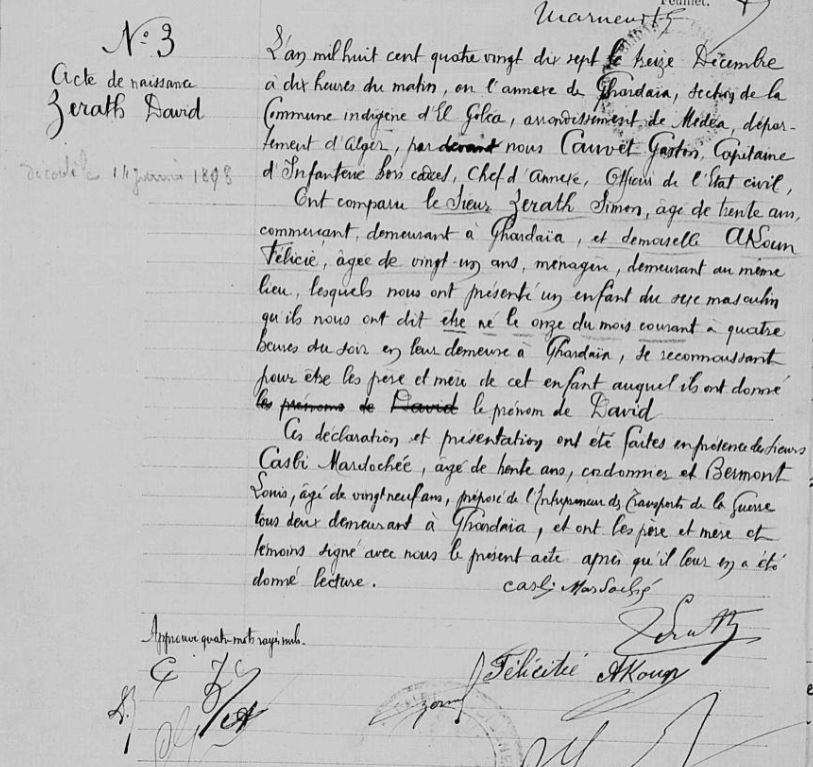 Feuillet.
N° 3
Acte de naissance
Zerath David
décédé le 14 janvier 1898
L'an mil huit cent quatre vingt dix sept le treize Décembre
à dix heures du matin, en l'annexe de Ghardaïa, section de la
Commune indigène d'El Goléa, arrondissement de Médéa, dépar-
tement d'Alger, par devant nous Cauvet Gaston, Capitaine
d'Infanterie hors cadres, Chef d'Annexe, Officier de l'Etat civil,
Ont comparu le Sieur Zerath Simon, âgé de trente ans,
commerçant, demeurant à Ghardaïa, et demoiselle AKoun
Félicie, âgée de vingt-un ans, ménagère, demeurant au même
lieu, lesquels nous ont présenté un enfant du sexe masculin
qu'ils nous ont dit être né le onze du mois courant à quatre
heures du soir en leur demeure à Ghardaïa, se reconnaissant
pour être les père et mère de cet enfant auquel ils ont donné
les prénoms de David le prénom de David
Ces déclaration et présentation ont été faites en présence des sieurs
Casbi Mardochée, âgé de trente ans, cordonnier et Bermont
Louis, âgé de vingt neuf ans, préposé de l'Entrepreneur des Transports de la Guerre
tous deux demeurant à Ghardaïa, et ont les père et mère et
témoins signé avec nous le présent acte après qu'il leur en a été
donné lecture.
casbi Mardoché
Approuvé quatre mots rayés nuls.
Zerath
Félicitié AKoun